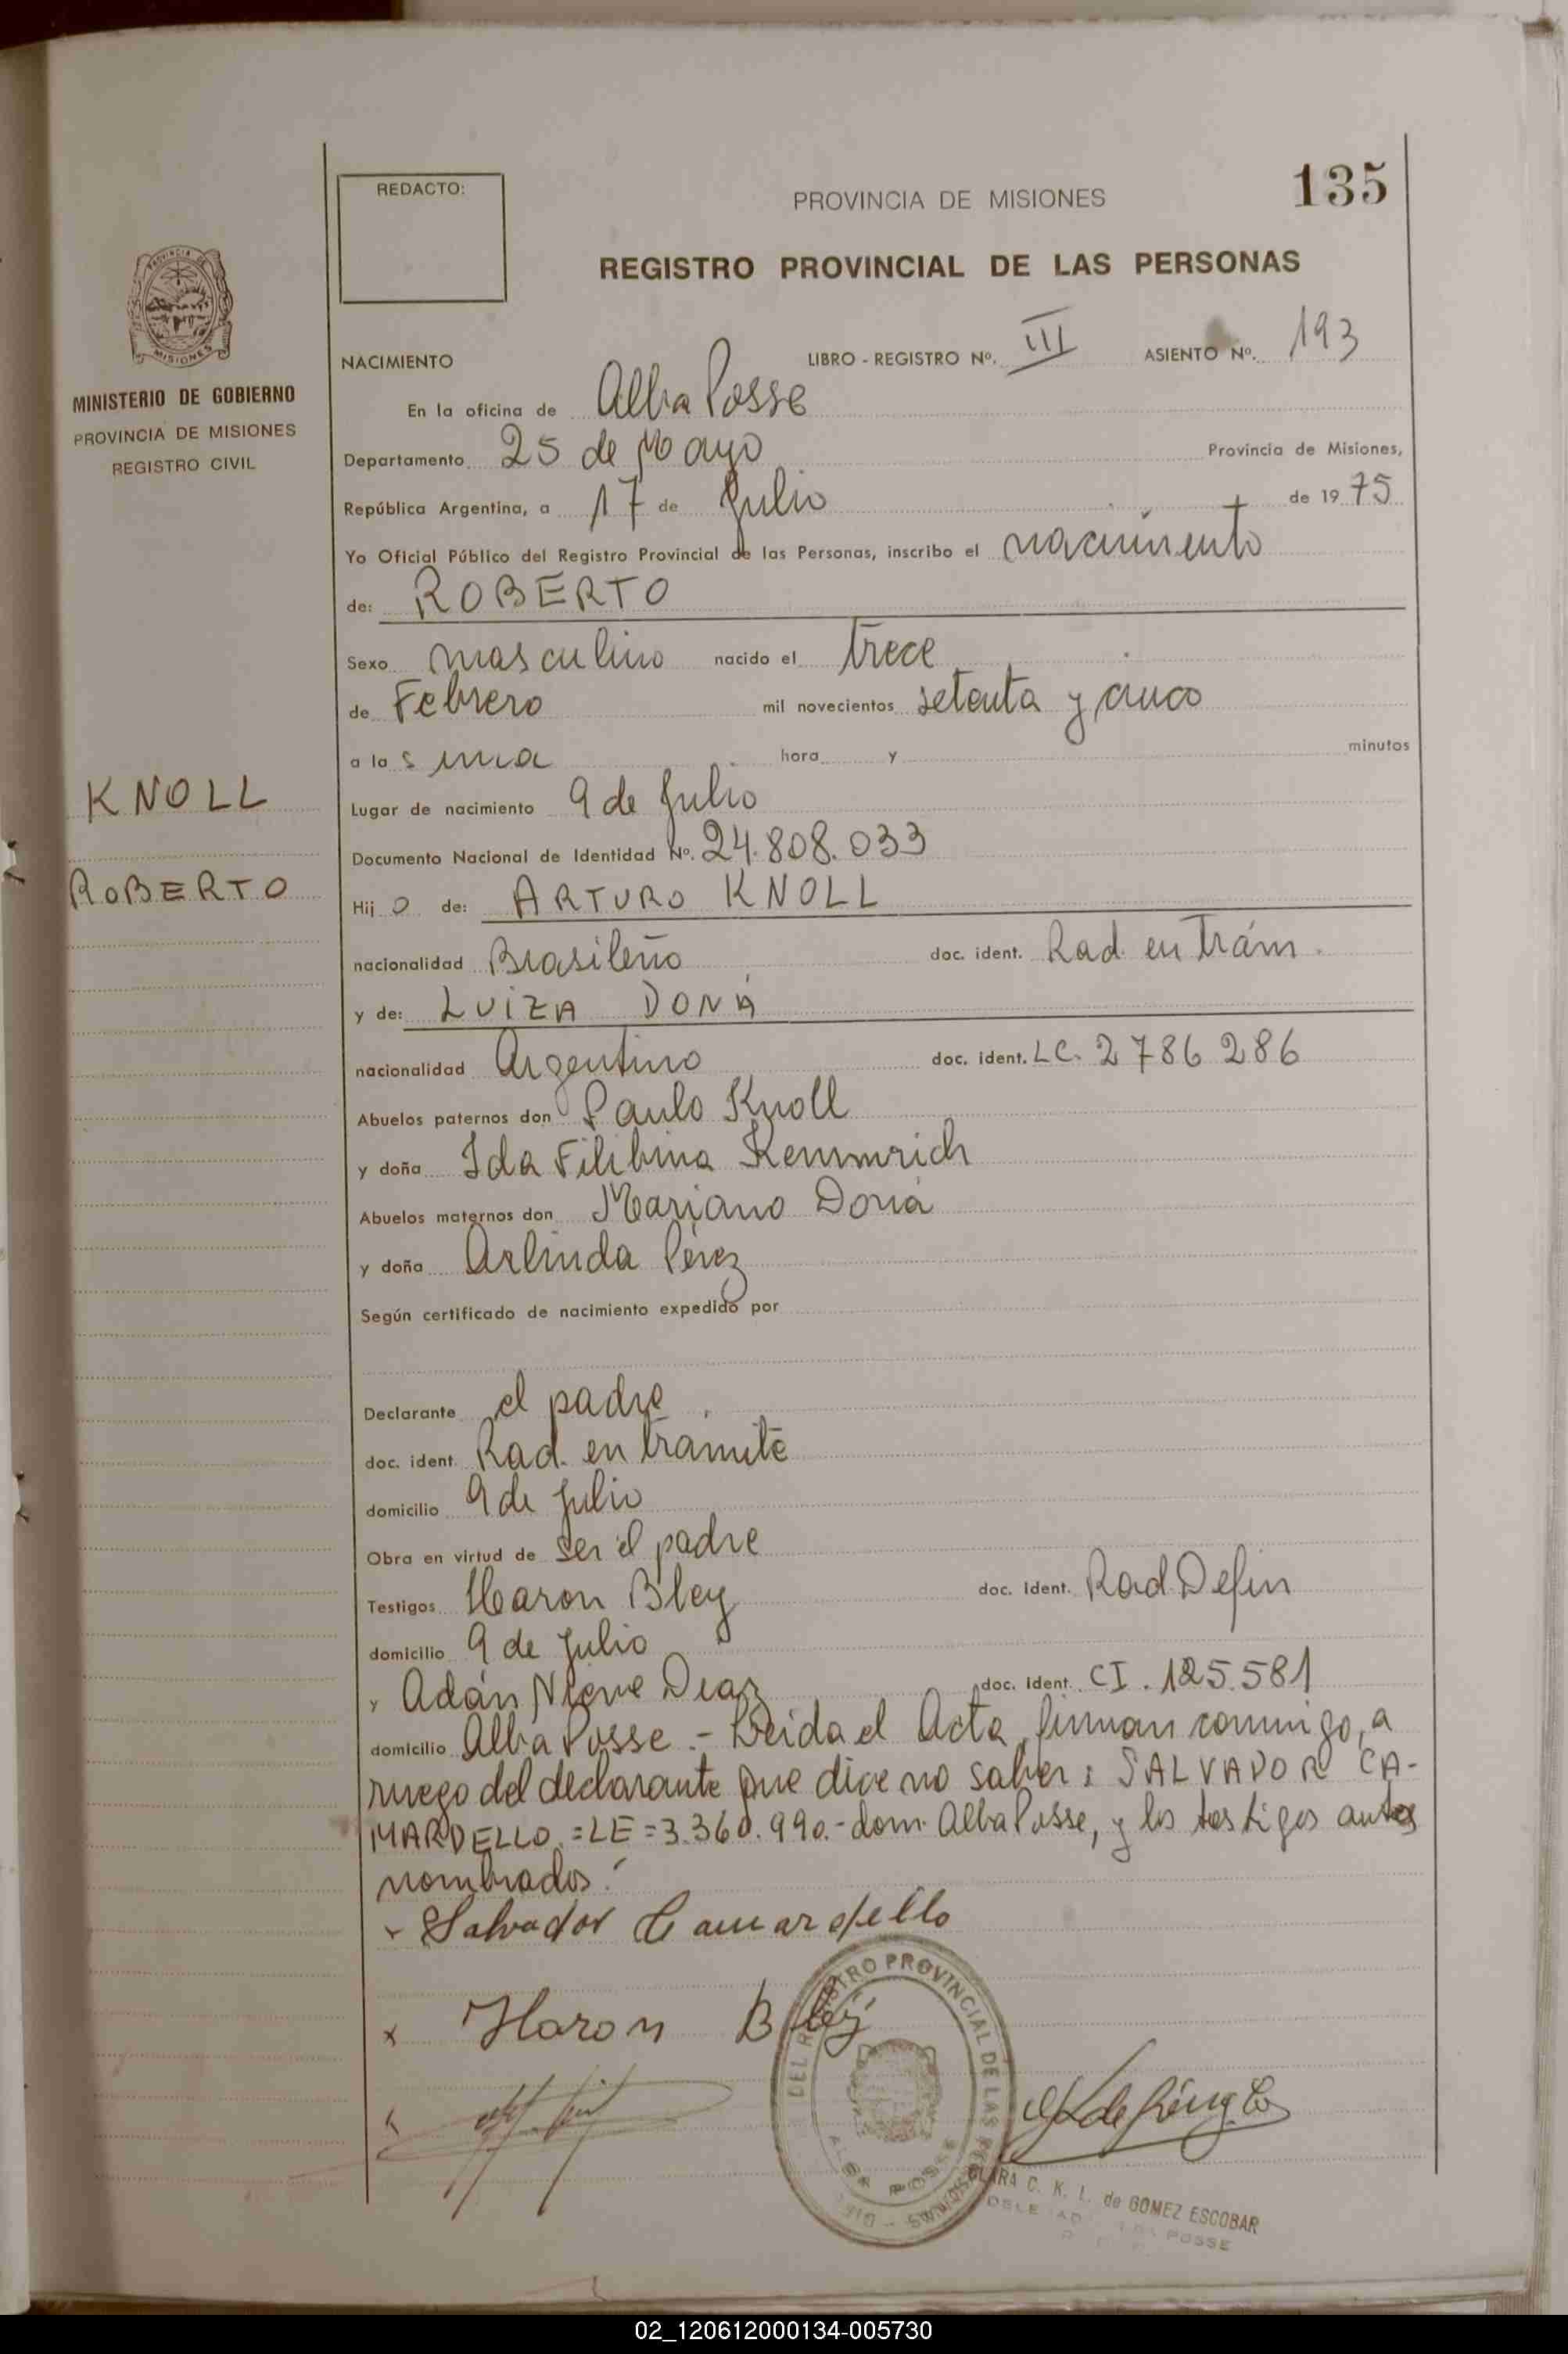 135
REDACTO:
PROVINCIA DE MISIONES
REGISTRO PROVINCIAL DE LAS PERSONAS
PROVINCIA DE MISIONES
MINISTERIO DE GOBIERNO
PROVINCIA DE MISIONES
REGISTRO CIVIL
NACIMIENTO LIBRO - REGISTRO Nº. III ASIENTO Nº. 193
En la oficina de Alba Posse
Departamento 25 de Mayo Provincia de Misiones,
República Argentina, a 17 de Julio de 1975
Yo Oficial Público del Registro Provincial de las Personas, inscribo el nacimiento
de: ROBERTO
Sexo masculino nacido el trece
de Febrero mil novecientos setenta y cinco
a la s una hora y minutos
KNOLL
Lugar de nacimiento 9 de Julio
Documento Nacional de Identidad Nº. 24.808.033
ROBERTO
Hij o de: ARTURO KNOLL
nacionalidad Brasileño doc. ident. Rad. en Trám.
y de: LUIZA DONÁ
nacionalidad Argentino doc. ident. LC. 2786286
Abuelos paternos don Paulo Knoll
y doña Ida Filibina Kemmrich
Abuelos maternos don Mariano Doná
y doña Arlinda Pérez
Según certificado de nacimiento expedido por
Declarante el padre
doc. ident. Rad. en trámite
domicilio 9 de Julio
Obra en virtud de ser el padre
Testigos Haron Bley doc. Ident. Rad Defin
domicilio 9 de Julio
y Adán Diaz doc. Ident. CI. 125.581
domicilio Alba Posse.- Leida el Acta, firman conmigo, a
ruego del declarante que dice no saber: SALVADOR CA-
MARDELLO.=LE=3.360.990.-dom. Alba Posse, y los testigos antes
nombrados.
Salvador Camardello
x Haron Bley
DEL REGISTRO PROVINCIAL DE LAS PERSONAS
ALBA POSSE
CLARA C. K. L. de GOMEZ ESCOBAR
POSSE
02_120612000134-005730